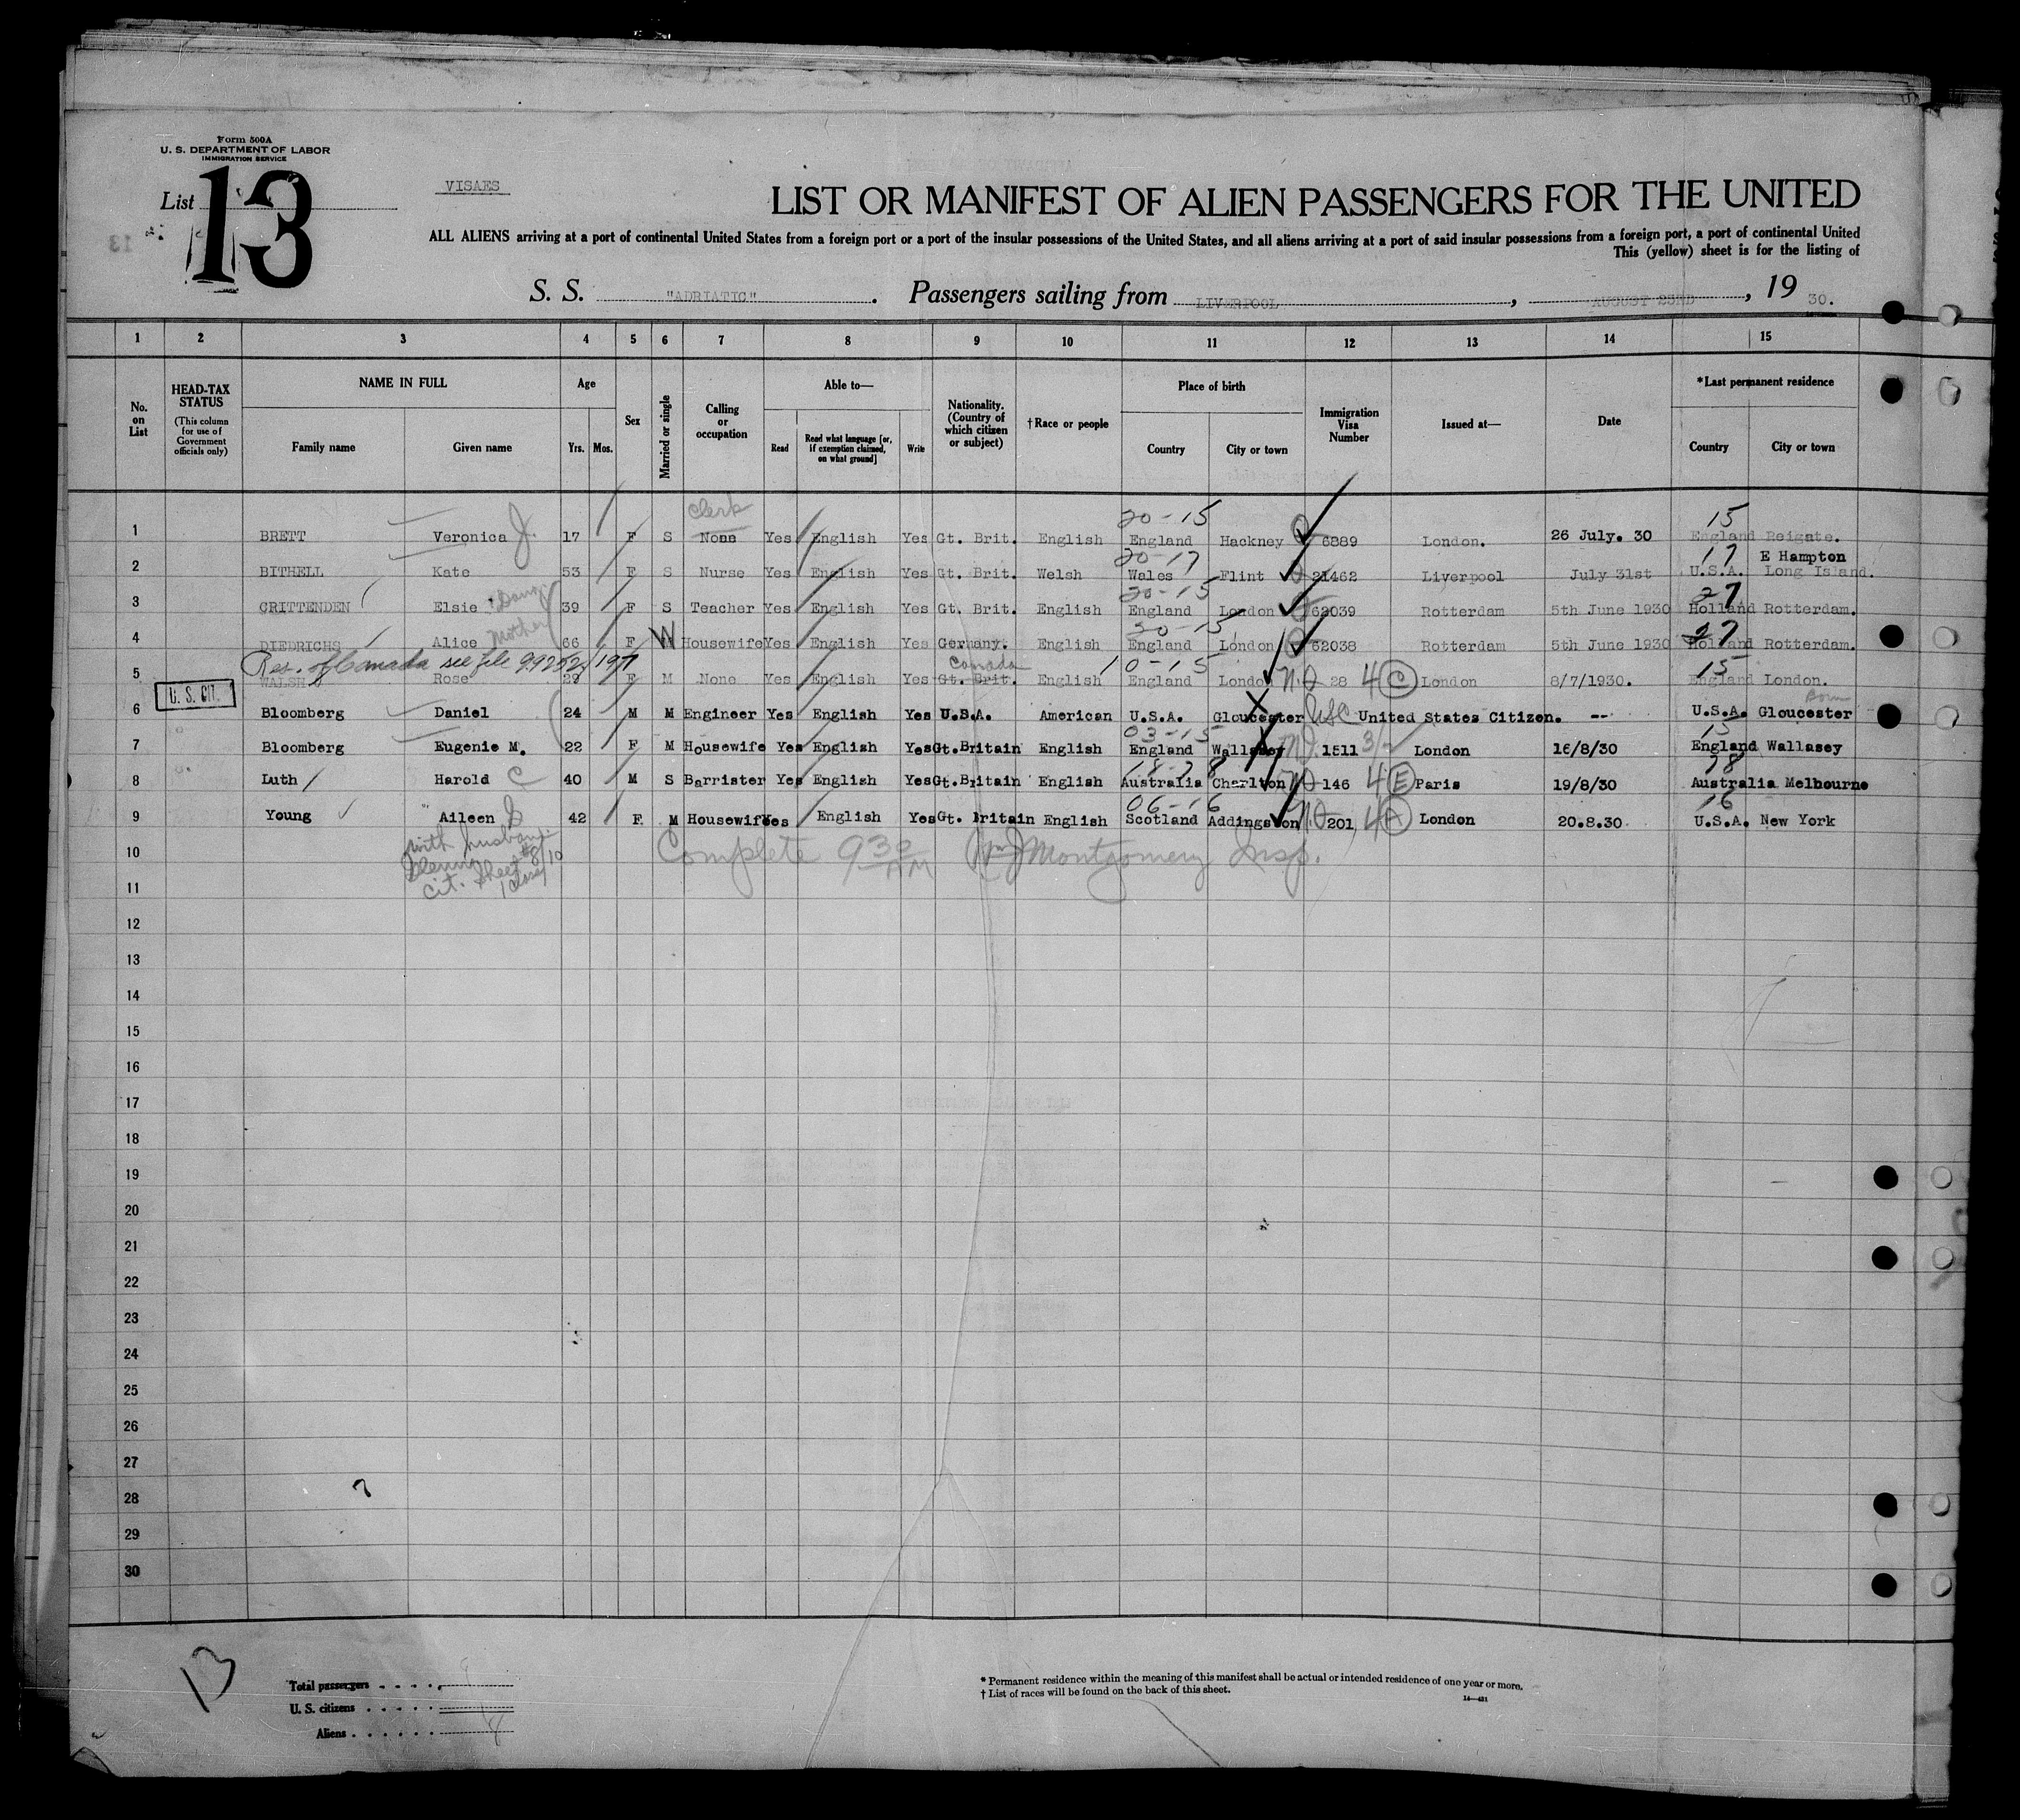 Form 500A
U. S. DEPARTMENT OF LABOR
IMMIGRATION SERVICE
List 13
VISAES
LIST OR MANIFEST OF ALIEN PASSENGERS FOR THE UNITED
ALL ALIENS arriving at a port of continental United States from a foreign port or a port of the insular possessions of the United States, and all aliens arriving at a port of said insular possessions from a foreign port, a port of continental United
This (yellow) sheet is for the listing of
S. S. "ADRIATIC". Passengers sailing from LIVERPOOL, AUGUST 23RD, 19 30.
1 2 3 4 5 6 7 8 9 10 11 12 13 14 15
No. on List
HEAD-TAX STATUS (This column for use of Government officials only)
NAME IN FULL Family name Given name
Age Yrs. Mos.
Sex
Married or single
Calling or occupation
Able to— Read Read what language [or, if exemption claimed, on what ground] Write
Nationality. (Country of which citizen or subject)
†Race or people
Place of birth Country City or town
Immigration Visa Number
Issued at—
Date
*Last permanent residence Country City or town
Clerk 20-15 15
1 BRETT Veronica J. 17 F S None Yes English Yes Gt. Brit. English England Hackney 6889 London. 26 July. 30 England Reigate.
20-17 17 E Hampton
2 BITHELL Kate 53 F S Nurse Yes English Yes Gt. Brit. Welsh Wales Flint 21462 Liverpool July 31st U.S.A. Long Island.
20-15 27
3 CRITTENDEN Elsie 39 F S Teacher Yes English Yes Gt. Brit. English England London 62039 Rotterdam 5th June 1930 Holland Rotterdam.
20-15 27
4 DIEDRICHS Alice Mother 66 F W Housewife Yes English Yes Germany. English England London 62038 Rotterdam 5th June 1930 Holland Rotterdam.
Res. of Canada see file 99252/197 Canada 10-15 15
5 WALSH Rose 29 F M None Yes English Yes Gt. Brit. English England London 28 4 C London 8/7/1930. England London.
U. S. CIT. Born
6 Bloomberg Daniel 24 M M Engineer Yes English Yes U.S.A. American U.S.A. Gloucester USC United States Citizen. -- U.S.A. Gloucester
03-15 15
7 Bloomberg Eugenie M. 22 F M Housewife Yes English Yes Gt.Britain English England Wallasey 1511 3/2 London 16/8/30 England Wallasey
18-78 78
8 Luth Harold C 40 M S Barrister Yes English Yes Gt.Britain English Australia Charlton 146 4 E Paris 19/8/30 Australia Melbourne
06-16 16
9 Young Aileen D 42 F M Housewife Yes English Yes Gt. Britain English Scotland Addingston 201 4 A London 20.8.30 U.S.A. New York
with husband
Glenn Sheet #8/10
cit. 1 Class
10 Complete 9 30 AM Wm J Montgomery Insp.
11
12
13
14
15
16
17
18
19
20
21
22
23
24
25
26
27
28
29
30
13
Total passengers 9
U. S. citizens
Aliens 8
* Permanent residence within the meaning of this manifest shall be actual or intended residence of one year or more.
† List of races will be found on the back of this sheet.
14—421